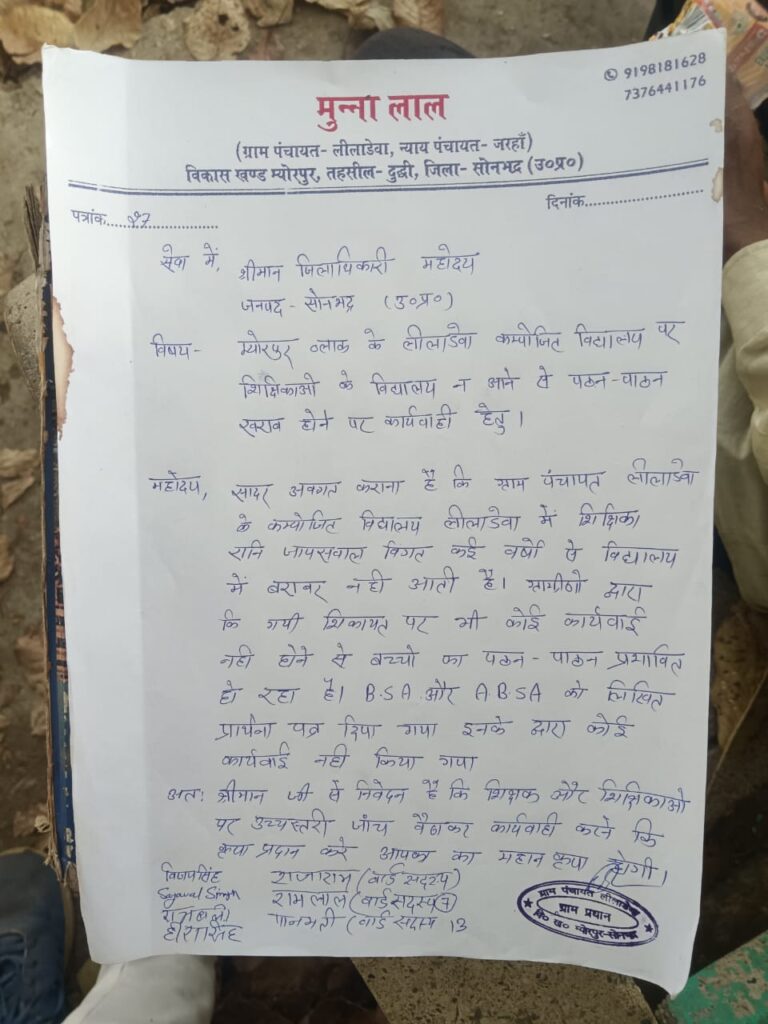 9198181628
7376441176
मुन्ना लाल
(ग्राम पंचायत- लीलाडेवा, न्याय पंचायत- जरहाँ)
विकास खण्ड म्योरपुर, तहसील- दुद्धी, जिला- सोनभद्र (उ०प्र०)
पत्रांक........27........ दिनांक........................
सेवा में,
श्रीमान जिलाधिकारी महोदय
जनपद - सोनभद्र (उ०प्र०)
विषय- म्योरपुर ब्लाक के लीलाडेवा कम्पोजिट विद्यालय पर
शिक्षिकाओ के विद्यालय न आने से पठन-पाठन
खराब होने पर कार्यवाही हेतु।
महोदय, सादर अवगत कराना है कि ग्राम पंचायत लीलाडेवा
के कम्पोजिट विद्यालय लीलाडेवा में शिक्षिका
रानि जायसवाल विगत कई वर्षो से विद्यालय
में बराबर नही आती है। ग्रामीणो द्वारा
कि गयी शिकायत पर भी कोई कार्यवाई
नही होने से बच्चो का पठन-पाठन प्रभावित
हो रहा है। B.S.A और A.B.S.A को लिखित
प्रार्थना पत्र दिया गया इनके द्वारा कोई
कार्यवाई नही किया गया
अतः श्रीमान जी से निवेदन है कि शिक्षक और शिक्षिकाओ
पर उच्चस्तरी जाँच बैठाकर कार्यवाही करने कि
कृपा प्रदान करे आपका का महान कृपा होगी।
विजय सिंह राजाराम (वार्ड सदस्य)
रामलाल (वार्ड सदस्य 7)
पानमती (वार्ड सदस्य 13
हीरा सिंह
ग्राम पंचायत लीलाडेवा
ग्राम प्रधान
वि० ख० म्योरपुर-सोनभद्र